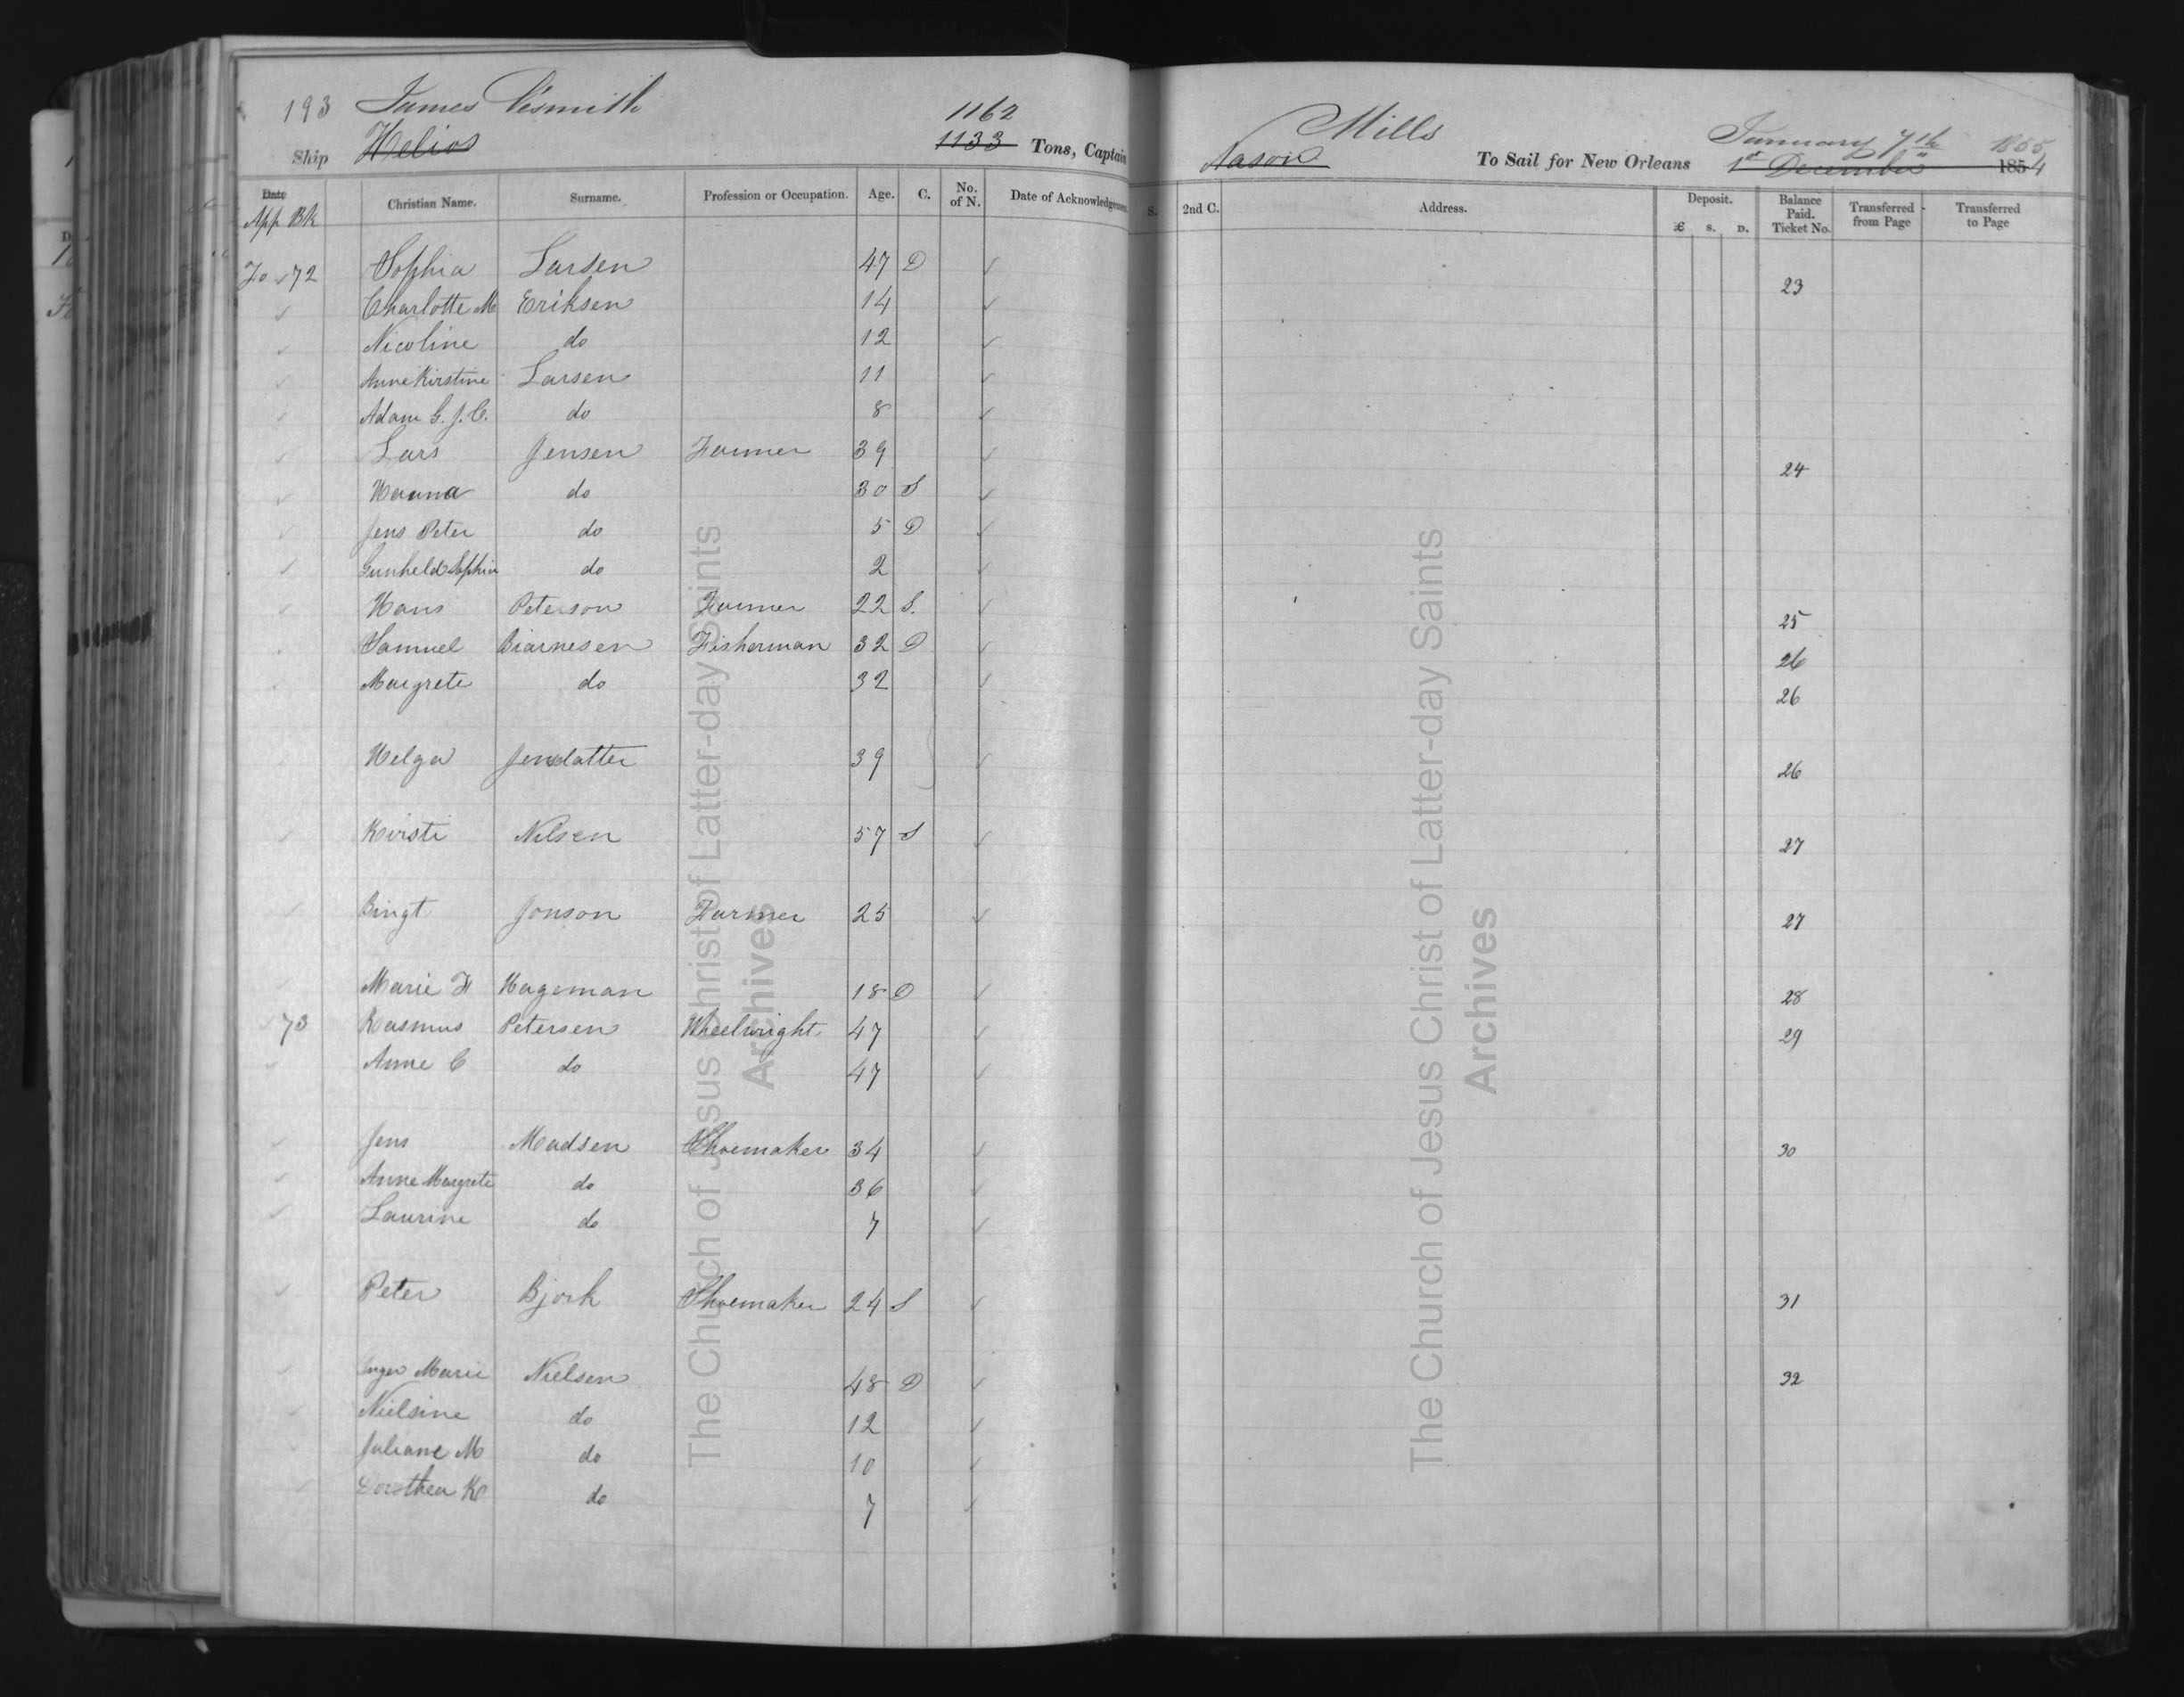 193 James Nesmith 1162 Mills January 7th 1855
Ship Helios 1133 Tons, Captain Nason To Sail for New Orleans 1st December 1854
Date Christian Name. Surname. Profession or Occupation. Age. C. No. of N. Date of Acknowledgement S. 2nd C. Address. Deposit. £ s. D. Balance Paid. Ticket No. Transferred from Page Transferred to Page
App BK
Fo 72 Sophia Larsen 47 D ✓ 23
✓ Charlotte M Eriksen 14 ✓
✓ Nicoline do 12 ✓
✓ Anne Kirstine Larsen 11 ✓
✓ Adam G. J. C. do 8 ✓
✓ Lars Jensen Farmer 39 ✓ 24
✓ Hanna do 30 S ✓
✓ Jens Peter do 5 D ✓
✓ Gunheld Sophia do 2 ✓
✓ Hans Peterson Farmer 22 S. ✓ 25
Samuel Biarnesen Fisherman 32 D ✓ 26
Margrete do 32 ✓ 26
Helga Jensdatter 39 ✓ 26
✓ Kirsti Nilsen 57 S ✓ 27
✓ Bingt Jonson Farmer 25 ✓ 27
✓ Marie H Hageman 18 D ✓ 28
✓ 73 Rasmus Petersen Wheelwright 47 ✓ 29
✓ Anne C do 47 ✓
✓ Jens Madsen Shoemaker 34 ✓ 30
✓ Anne Margrete do 36 ✓
✓ Laurine do 7 ✓
✓ Peter Bjork Shoemaker 24 S ✓ 31
✓ Inger Marie Nielsen 48 D ✓ 32
✓ Nielsine do 12 ✓
✓ Juliane M do 10 ✓
✓ Dorothea K do 7 ✓
The Church of Jesus Christ of Latter-day Saints
Archives
The Church of Jesus Christ of Latter-day Saints
Archives